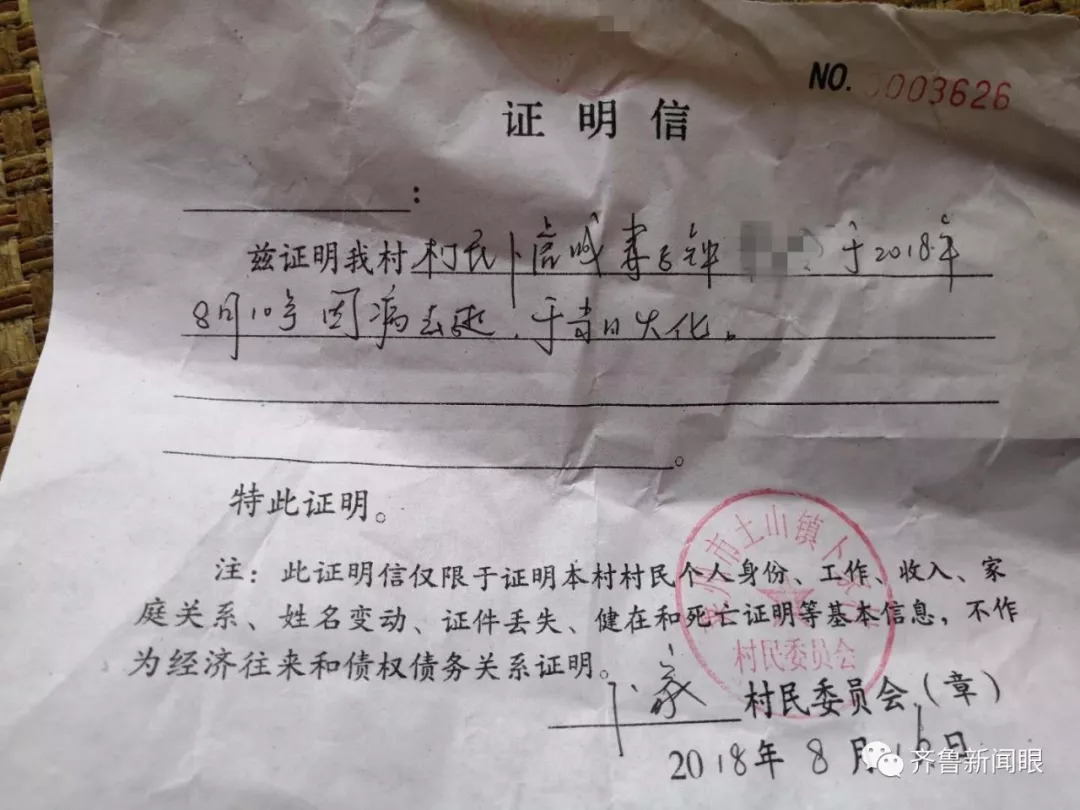 NO. 0003626
证明信
：
兹证明我村村民卜 于2018年
8月10号因病去逝，于当日火化。
。
特此证明。
注：此证明信仅限于证明本村村民个人身份、工作、收入、家
庭关系、姓名变动、证件丢失、健在和死亡证明等基本信息，不作
为经济往来和债权债务关系证明。
市土山镇卜
村民委员会
卜家村民委员会（章）
2018年8月16日
齐鲁新闻眼